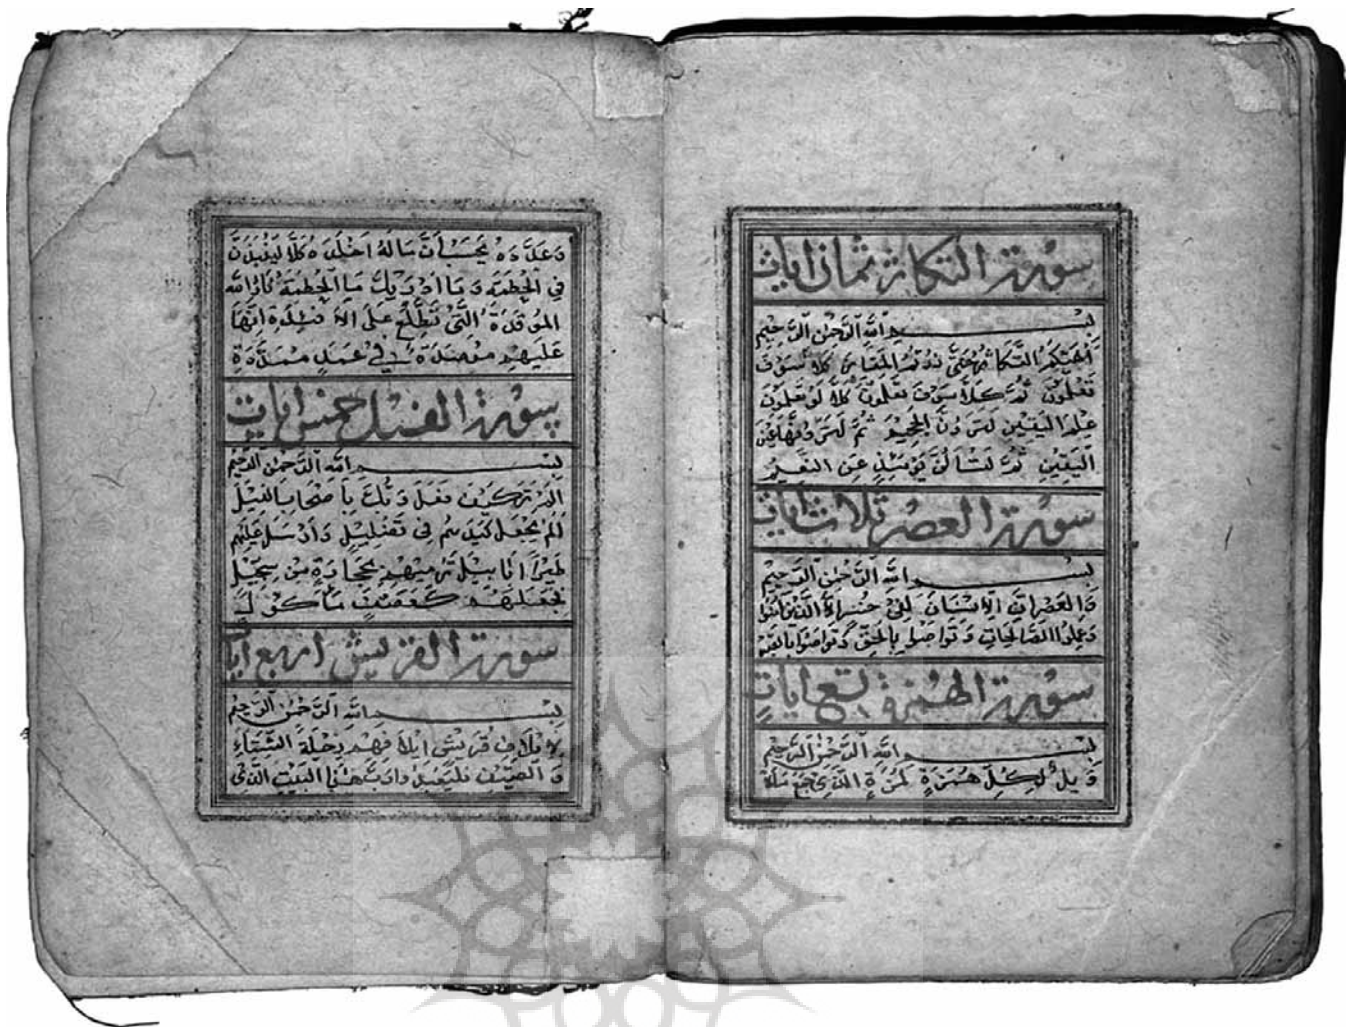 سورة التكاثر ثمان ايات
بسم الله الرحمن الرحيم
ألهيكم التكاثر حتى زرتم المقابر كلا سوف
تعلمون ثم كلا سوف تعلمون كلا لو تعلمون
علم اليقين لترون الجحيم ثم لترونها عين
اليقين ثم لتسألن يومئذ عن النعيم
سورة العصر ثلاث ايات
بسم الله الرحمن الرحيم
والعصر ان الانسان لفى خسر الا الذين امنوا
وعملوا الصالحات وتواصوا بالحق وتواصوا بالصبر
سورة الهمزة تسع ايات
بسم الله الرحمن الرحيم
ويل لكل همزة لمزة الذى جمع مالا
وعدده يحسب ان ماله اخلده كلا لينبذن
في الحطمة وما ادريك ما الحطمة نار الله
الموقدة التى تطلع على الافئدة انها
عليهم مؤصدة في عمد ممددة
سورة الفيل خمس ايات
بسم الله الرحمن الرحيم
الم تر كيف فعل ربك باصحاب الفيل
الم يجعل كيدهم في تضليل وارسل عليهم
طيرا ابابيل ترميهم بحجارة من سجيل
فجعلهم كعصف مأكول
سورة القريش اربع ايا
بسم الله الرحمن الرحيم
لايلاف قريش ايلافهم رحلة الشتاء
والصيف فليعبدوا رب هذا البيت الذى